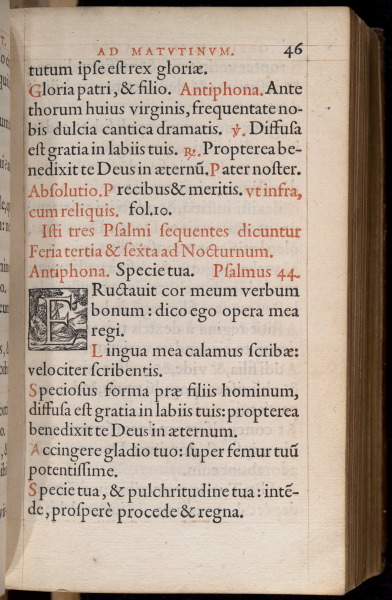 AD MATVTINVM. 46
tutum ipse est rex gloriæ.
Gloria patri, & filio. Antiphona. Ante
thorum huius virginis, frequentate no-
bis dulcia cantica dramatis. ℣. Diffusa
est gratia in labiis tuis. ℟. Propterea be-
nedixit te Deus in æternũ. Pater noster.
Absolutio. Precibus & meritis. vt infra,
cum reliquis. fol.10.
Isti tres Psalmi sequentes dicuntur
Feria tertia & sexta ad Nocturnum.
Antiphona. Specie tua. Psalmus 44.
ERuctauit cor meum verbum
bonum : dico ego opera mea
regi.
Lingua mea calamus scribæ:
velociter scribentis.
Speciosus forma præ filiis hominum,
diffusa est gratia in labiis tuis: propterea
benedixit te Deus in æternum.
Accingere gladio tuo: super femur tuũ
potentissime.
Specie tua, & pulchritudine tua : intẽ-
de, prosperè procede & regna.